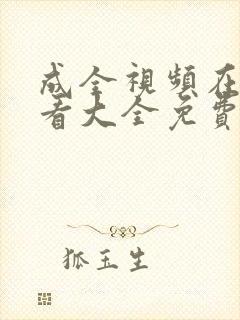 成全視頻在
看大全免費
狐玉生